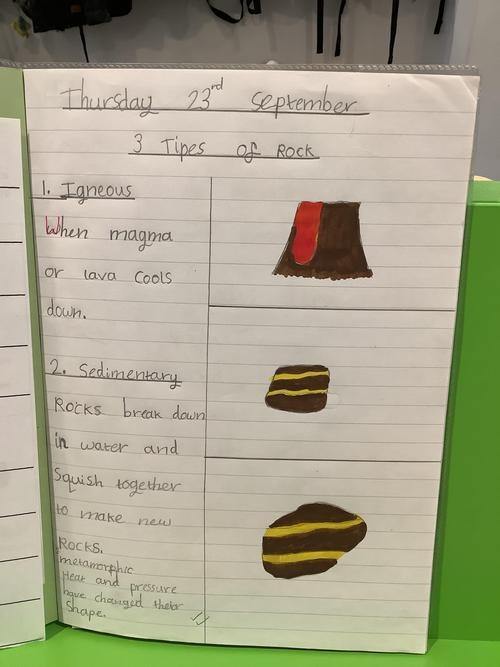 Thursday 23rd September
3 Tipes of Rock
1. Igneous
When magma
or lava cools
down.
2. Sedimentary
Rocks break down
in water and
Squish together
to make new
Rocks.
metamorphic
Heat and pressure
have changed their
Shape.